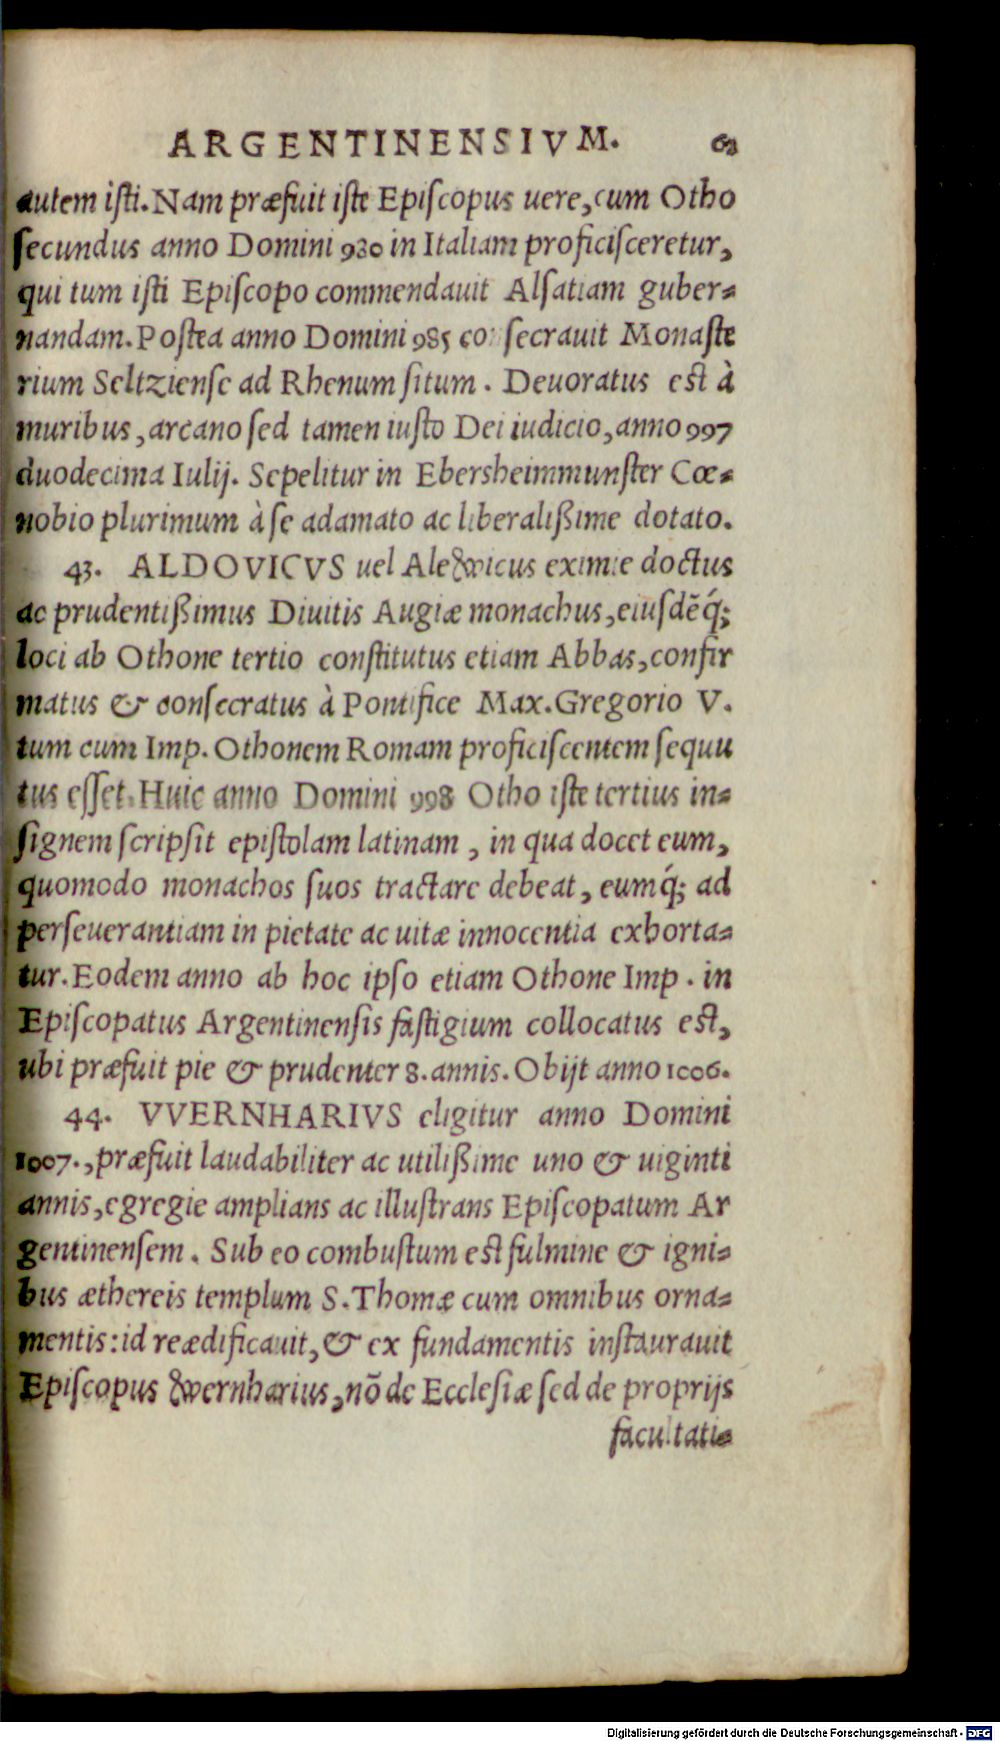 ARGENTINENSIVM. 62
autem isti. Nam præfuit iste Episcopus uere, cum Otho
secundus anno Domini 980 in Italiam proficisceretur,
qui tum isti Episcopo commendauit Alsatiam guber-
nandam. Postea anno Domini 985 co secrauit Monaste
rium Seltziense ad Rhenum situm. Deuoratus est à
muribus, arcano sed tamen iusto Dei iudicio, anno 997
duodecima Iulij. Sepelitur in Ebersheimmunster Cœ-
nobio plurimum à se adamato ac liberalißime dotato.
43. ALDOVICVS uel Alewicus eximie doctus
ac prudentißimus Diuitis Augiæ monachus, eiusdēq́;
loci ab Othone tertio constitutus etiam Abbas, confir
matus & consecratus à Pontifice Max. Gregorio V.
tum cum Imp. Othonem Romam proficiscentem sequu
tus esset. Huic anno Domini 998 Otho iste tertius in-
signem scripsit epistolam latinam, in qua docet eum,
quomodo monachos suos tractare debeat, eumq́; ad
perseuerantiam in pietate ac uitæ innocentia exhorta-
tur. Eodem anno ab hoc ipso etiam Othone Imp. in
Episcopatus Argentinensis fastigium collocatus est,
ubi præfuit pie & prudenter 8. annis. Obijt anno 1006.
44. VVERNHARIVS eligitur anno Domini
1007., præfuit laudabiliter ac utilißime uno & uiginti
annis, egregie amplians ac illustrans Episcopatum Ar
gentinensem. Sub eo combustum est fulmine & igni-
bus æthereis templum S. Thomæ cum omnibus orna-
mentis: id reædificauit, & ex fundamentis instaurauit
Episcopus Wernharius, nō de Ecclesiæ sed de proprijs
facultati-
Digitalisierung gefördert durch die Deutsche Forschungsgemeinschaft - DFG